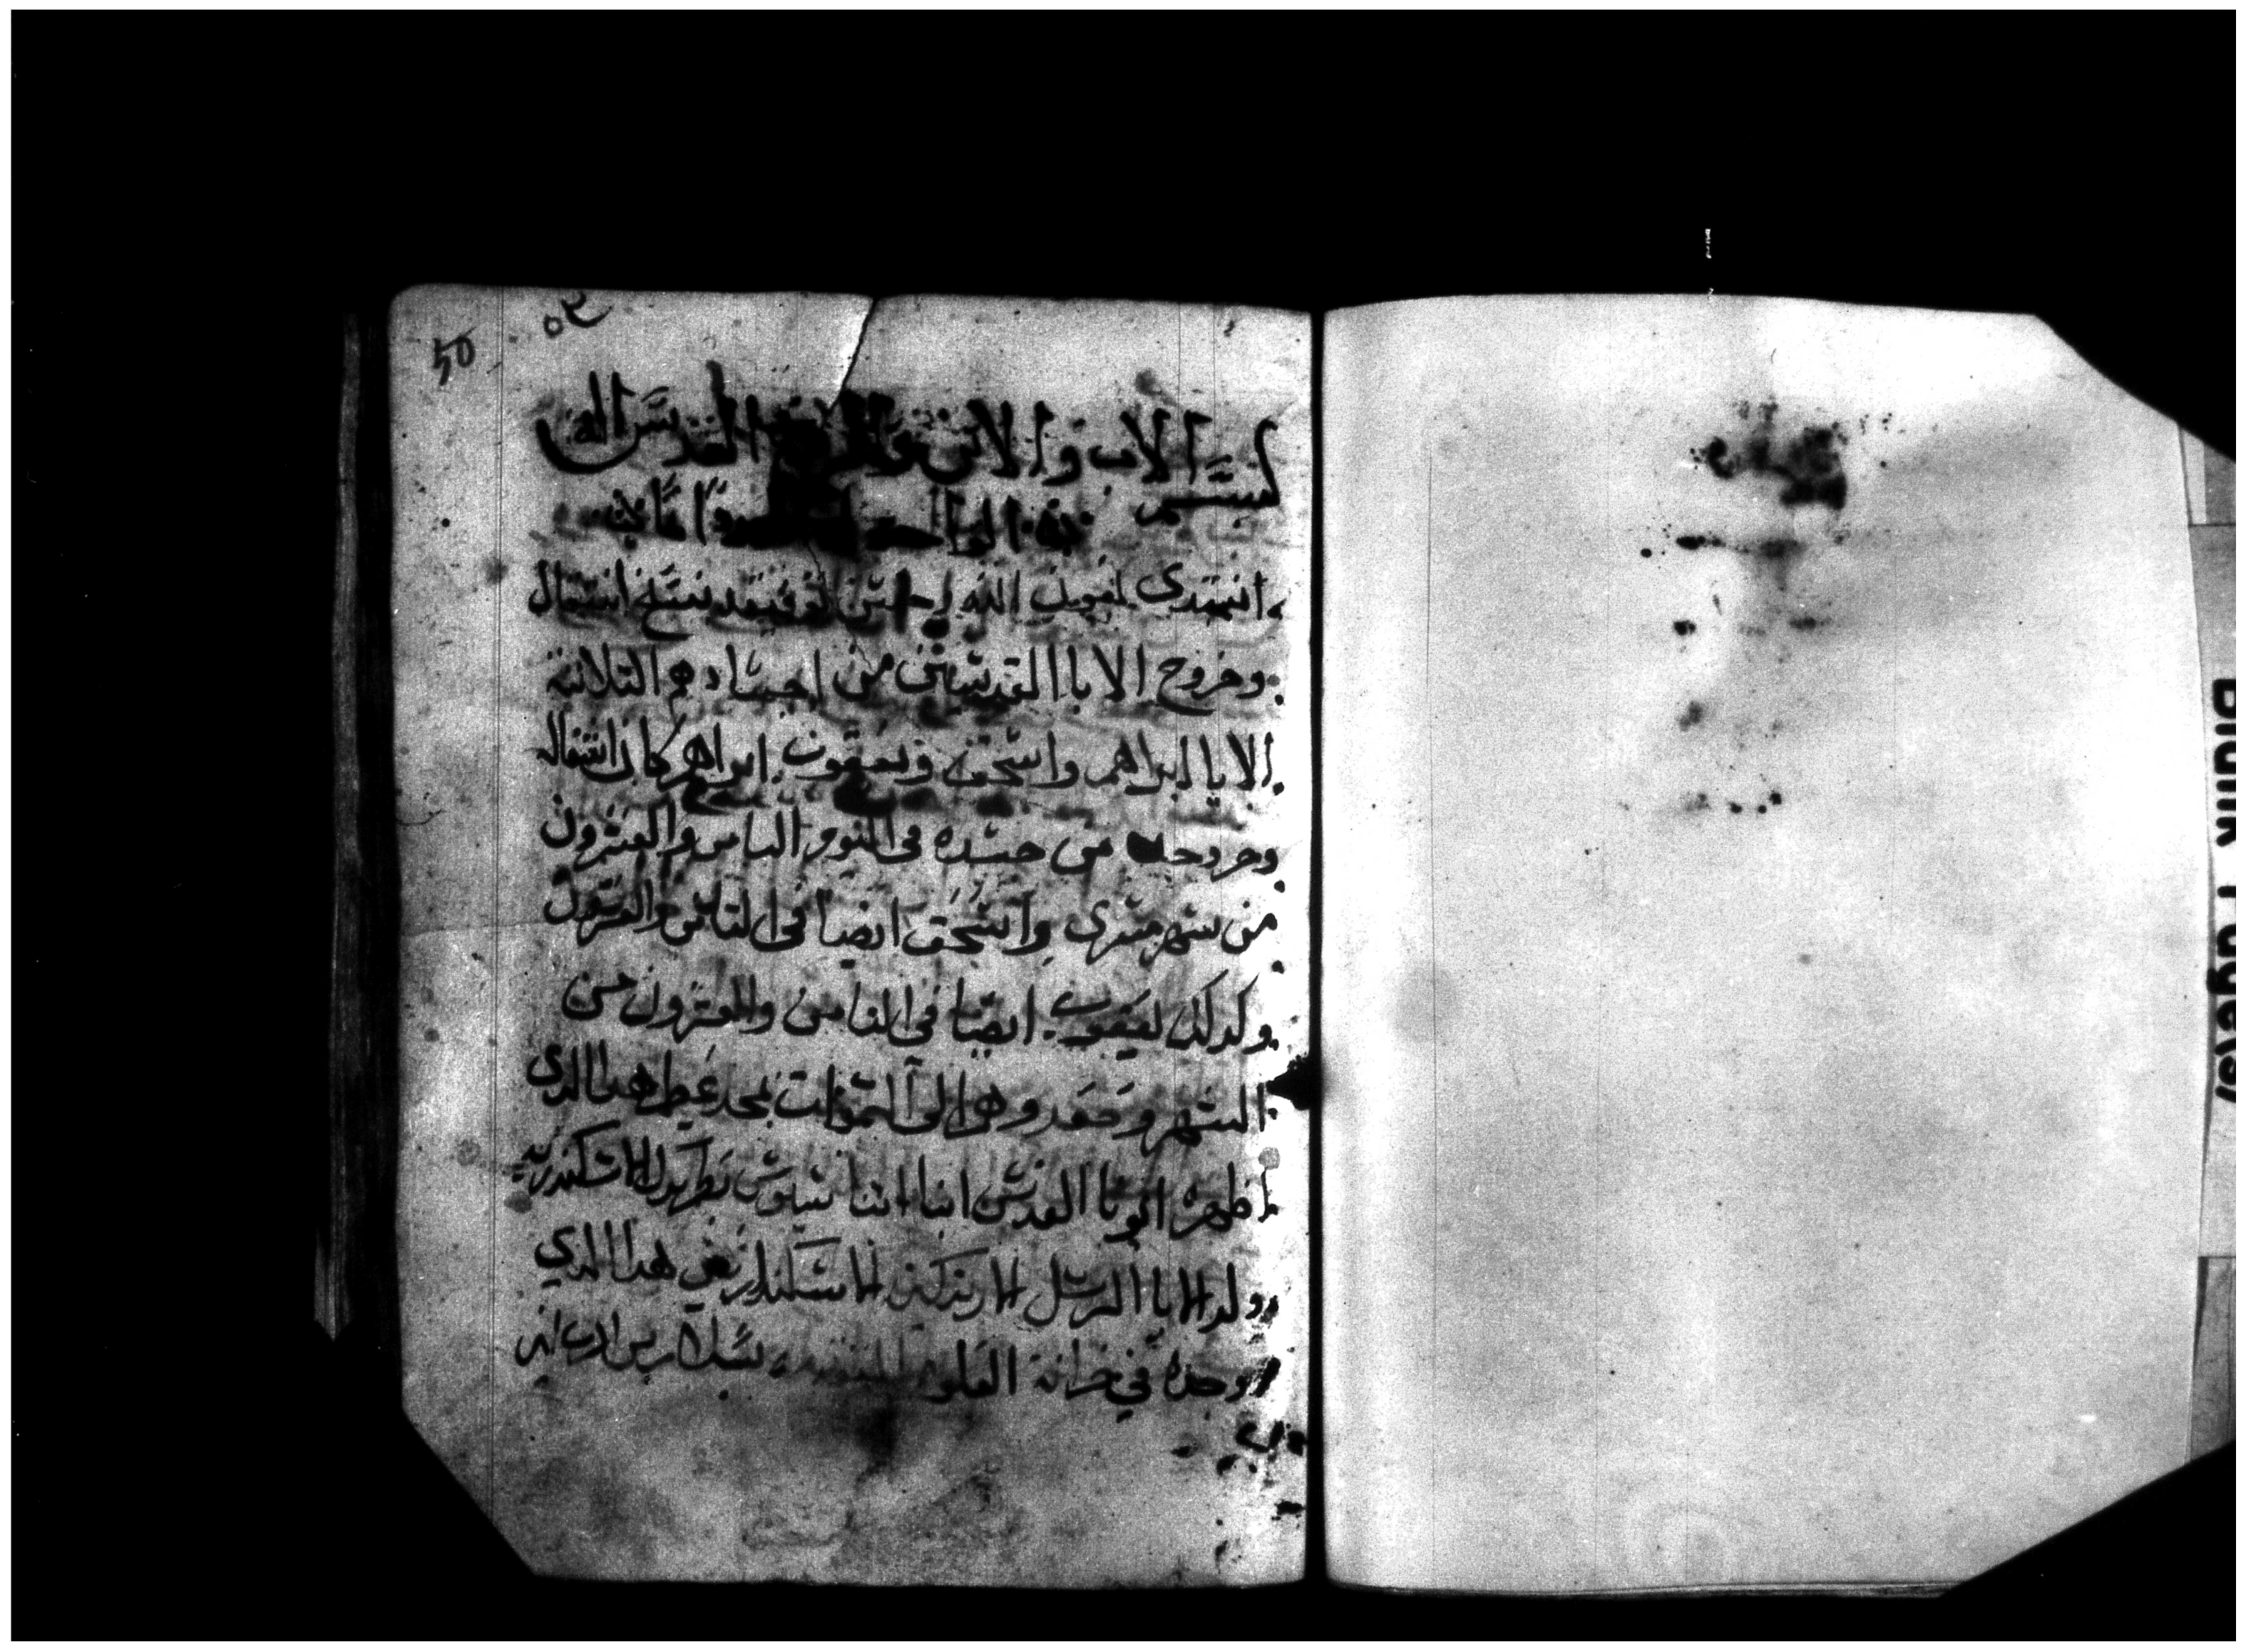 50
٥٢
بسم الاب والابن والروح القدس اله
الواحد
نبتدي بعون الله وحسن توفيقه بنسخ انتقال
وخروج الابا القديسين من اجسادهم التلاتة
الابا ابراهيم واسحق ويعقوب ابراهيم كان انتقاله
وخروجه من جسده في اليوم التامن والعشرون
من شهر مسرى واسحق ايضا في التامن والعشرون
وكدلك يعقوب ايضا في التامن والعشرون من
الشهر وصعدوهم الى السموات بمجد عظيم هدا الدي
اظهره ابونا القديس انبا اتناسيوس بطريرك الاسكندريه
ولد الابا الرسل الارتدكس الاسكندر نفي هدا الدي
وجده في خزانة العلوم بسلام من الرب امين
Blank Page(s)